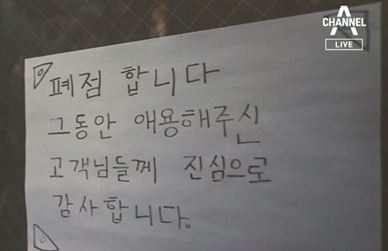 CHANNEL A
LIVE
폐점 합니다
그동안 애용해주신
고객님들께 진심으로
감사합니다.